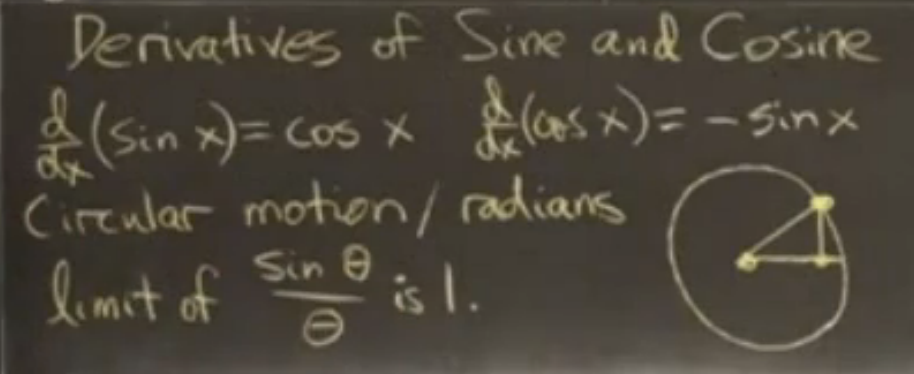 Derivatives of Sine and Cosine
d/dx (sin x) = cos x d/dx (cos x) = - sin x
Circular motion / radians
limit of sin θ / θ is 1.